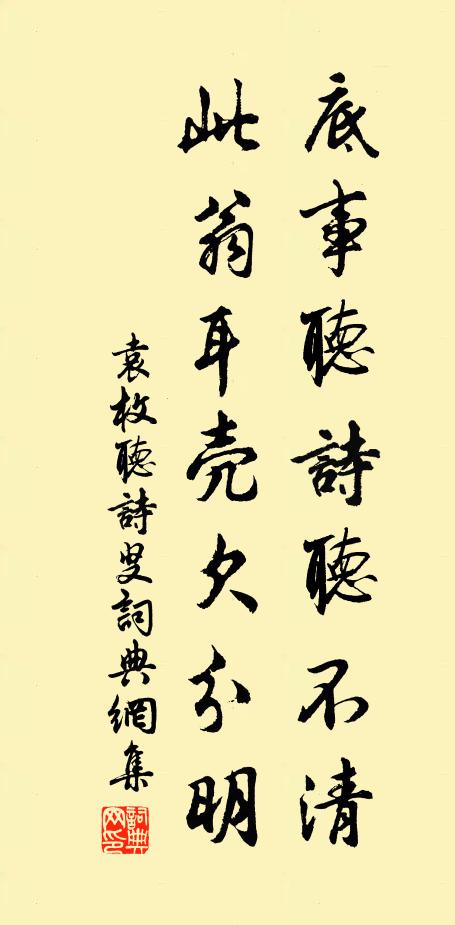 底事聽詩聽不清
此翁耳壳欠分明
袁枚聽詩叟詞典網集
詞典网印